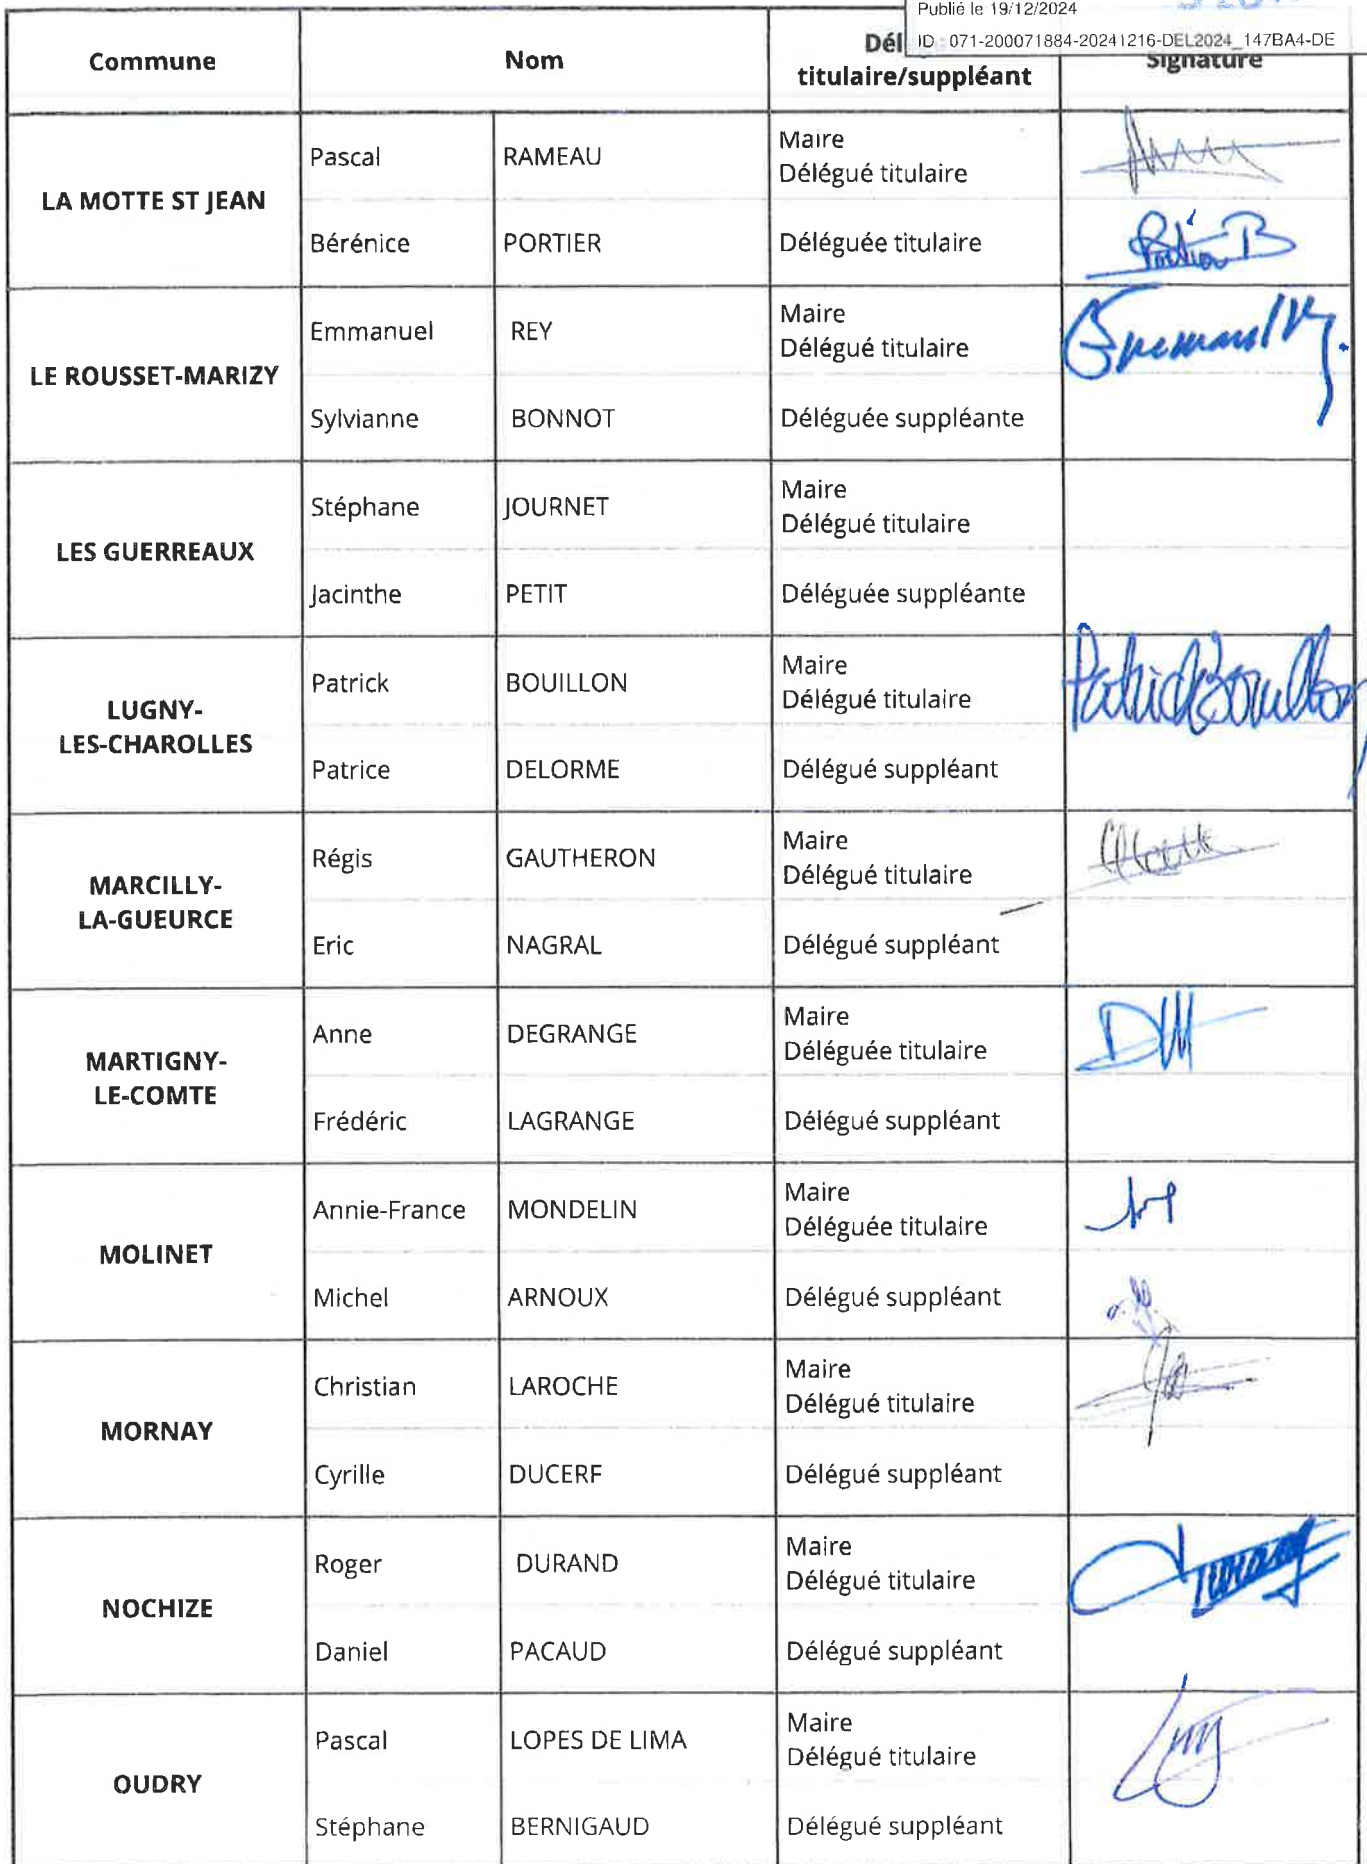 Publié le 19/12/2024
ID : 071-200071884-20241216-DEL2024_147BA4-DE
Commune
Nom
Dél
titulaire/suppléant
Signature
LA MOTTE ST JEAN
Pascal RAMEAU
Maire
Délégué titulaire
Bérénice PORTIER Déléguée titulaire
Portier B
LE ROUSSET-MARIZY
Emmanuel REY
Maire
Délégué titulaire
Sylvianne BONNOT Déléguée suppléante
LES GUERREAUX
Stéphane JOURNET
Maire
Délégué titulaire
Jacinthe PETIT Déléguée suppléante
LUGNY-
LES-CHAROLLES
Patrick BOUILLON
Maire
Délégué titulaire
Patrick Bouillon
Patrice DELORME Délégué suppléant
MARCILLY-
LA-GUEURCE
Régis GAUTHERON
Maire
Délégué titulaire
Eric NAGRAL Délégué suppléant
MARTIGNY-
LE-COMTE
Anne DEGRANGE
Maire
Déléguée titulaire
Frédéric LAGRANGE Délégué suppléant
MOLINET
Annie-France MONDELIN
Maire
Déléguée titulaire
Michel ARNOUX Délégué suppléant
MORNAY
Christian LAROCHE
Maire
Délégué titulaire
Cyrille DUCERF Délégué suppléant
NOCHIZE
Roger DURAND
Maire
Délégué titulaire
Daniel PACAUD Délégué suppléant
OUDRY
Pascal LOPES DE LIMA
Maire
Délégué titulaire
Stéphane BERNIGAUD Délégué suppléant